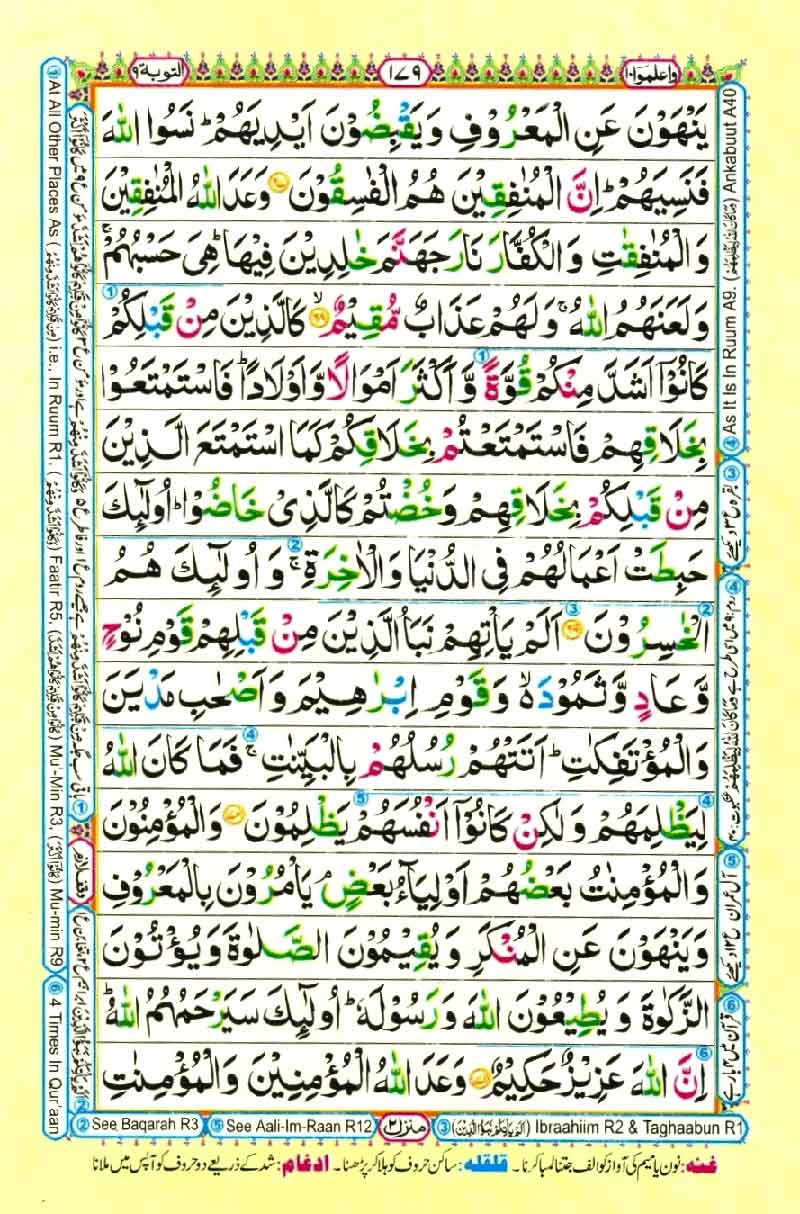 واعلموا ١٠
١٧٩
التوبة ٩
يَنْهَوْنَ عَنِ الْمَعْرُوْفِ وَيَقْبِضُوْنَ اَيْدِيَهُمْ ؕ نَسُوا اللّٰهَ
فَنَسِيَهُمْ ؕ اِنَّ الْمُنٰفِقِيْنَ هُمُ الْفٰسِقُوْنَ ۝۶۷ وَعَدَ اللّٰهُ الْمُنٰفِقِيْنَ
وَالْمُنٰفِقٰتِ وَالْكُفَّارَ نَارَ جَهَنَّمَ خٰلِدِيْنَ فِيْهَا ؕ هِيَ حَسْبُهُمْ ۚ
وَلَعَنَهُمُ اللّٰهُ ۚ وَلَهُمْ عَذَابٌ مُّقِيْمٌ ۙ۝۶۸ كَالَّذِيْنَ مِنْ قَبْلِكُمْ
كَانُوْۤا اَشَدَّ مِنْكُمْ قُوَّةً وَّاَكْثَرَ اَمْوَالًا وَّاَوْلَادًا ؕ فَاسْتَمْتَعُوْا
بِخَلَاقِهِمْ فَاسْتَمْتَعْتُمْ بِخَلَاقِكُمْ كَمَا اسْتَمْتَعَ الَّذِيْنَ
مِنْ قَبْلِكُمْ بِخَلَاقِهِمْ وَخُضْتُمْ كَالَّذِيْ خَاضُوْا ؕ اُولٰٓئِكَ
حَبِطَتْ اَعْمَالُهُمْ فِي الدُّنْيَا وَالْاٰخِرَةِ ۚ وَاُولٰٓئِكَ هُمُ
الْخٰسِرُوْنَ ۝۶۹ اَلَمْ يَاْتِهِمْ نَبَاُ الَّذِيْنَ مِنْ قَبْلِهِمْ قَوْمِ نُوْحٍ
وَّعَادٍ وَّثَمُوْدَ ۙ وَقَوْمِ اِبْرٰهِيْمَ وَاَصْحٰبِ مَدْيَنَ
وَالْمُؤْتَفِكٰتِ ؕ اَتَتْهُمْ رُسُلُهُمْ بِالْبَيِّنٰتِ ۚ فَمَا كَانَ اللّٰهُ
لِيَظْلِمَهُمْ وَلٰكِنْ كَانُوْۤا اَنْفُسَهُمْ يَظْلِمُوْنَ ۝۷۰ وَالْمُؤْمِنُوْنَ
وَالْمُؤْمِنٰتُ بَعْضُهُمْ اَوْلِيَآءُ بَعْضٍ ۘ يَاْمُرُوْنَ بِالْمَعْرُوْفِ
وَيَنْهَوْنَ عَنِ الْمُنْكَرِ وَيُقِيْمُوْنَ الصَّلٰوةَ وَيُؤْتُوْنَ
الزَّكٰوةَ وَيُطِيْعُوْنَ اللّٰهَ وَرَسُوْلَهٗ ؕ اُولٰٓئِكَ سَيَرْحَمُهُمُ اللّٰهُ ؕ
اِنَّ اللّٰهَ عَزِيْزٌ حَكِيْمٌ ۝۷۱ وَعَدَ اللّٰهُ الْمُؤْمِنِيْنَ وَالْمُؤْمِنٰتِ
① At All Other Places As i.e., In Ruum R1. Faatir R5, Mu'-Min R3, Mu-min R9 ⑥ 4 Times In Qur'aan
④ As It Is In Ruum A9. Ankabuut A40
③ بقرہ ع ۳ دیکھئے
⑤ آل عمران ع ۱۲ دیکھئے
⑥ قرآن میں ۴ بار ہے
② See Baqarah R3
⑤ See Aali-Im-Raan R12
منزل ٢
③ (اَلَمْ يَاْتِكُمْ نَبَؤُا الَّذِيْنَ) Ibraahiim R2 & Taghaabun R1
غنه: نون یا میم کی آواز کو الف جتنا لمبا کرنا۔ قلقله: ساکن حروف کو ہلا کر پڑھنا۔ ادغام: شد کے ذریعے دو حروف کو آپس میں ملانا